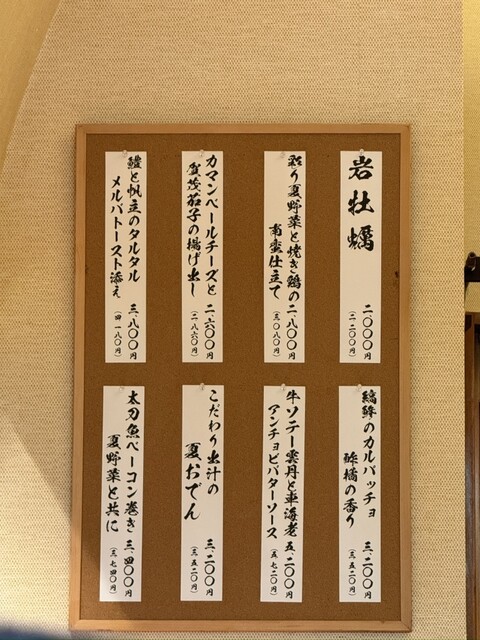 岩牡蠣
二、〇〇〇円
(二、二〇〇円)
彩り夏野菜と焼き鶏の
南蛮仕立て
二、八〇〇円
(三、〇八〇円)
カマンベールチーズと
賀茂茄子の揚げ出し
二、六〇〇円
(二、八六〇円)
と帆立のタルタル
メルバトースト添え
三、八〇〇円
(四、一八〇円)
縞鯵のカルパッチョ
酢橘の香り
三、二〇〇円
(三、五二〇円)
牛ソテー雲丹と車海老
アンチョビバターソース
五、二〇〇円
(五、七二〇円)
こだわり出汁の
夏おでん
三、二〇〇円
(三、五二〇円)
太刀魚ベーコン巻き
夏野菜と共に
三、四〇〇円
(三、七四〇円)